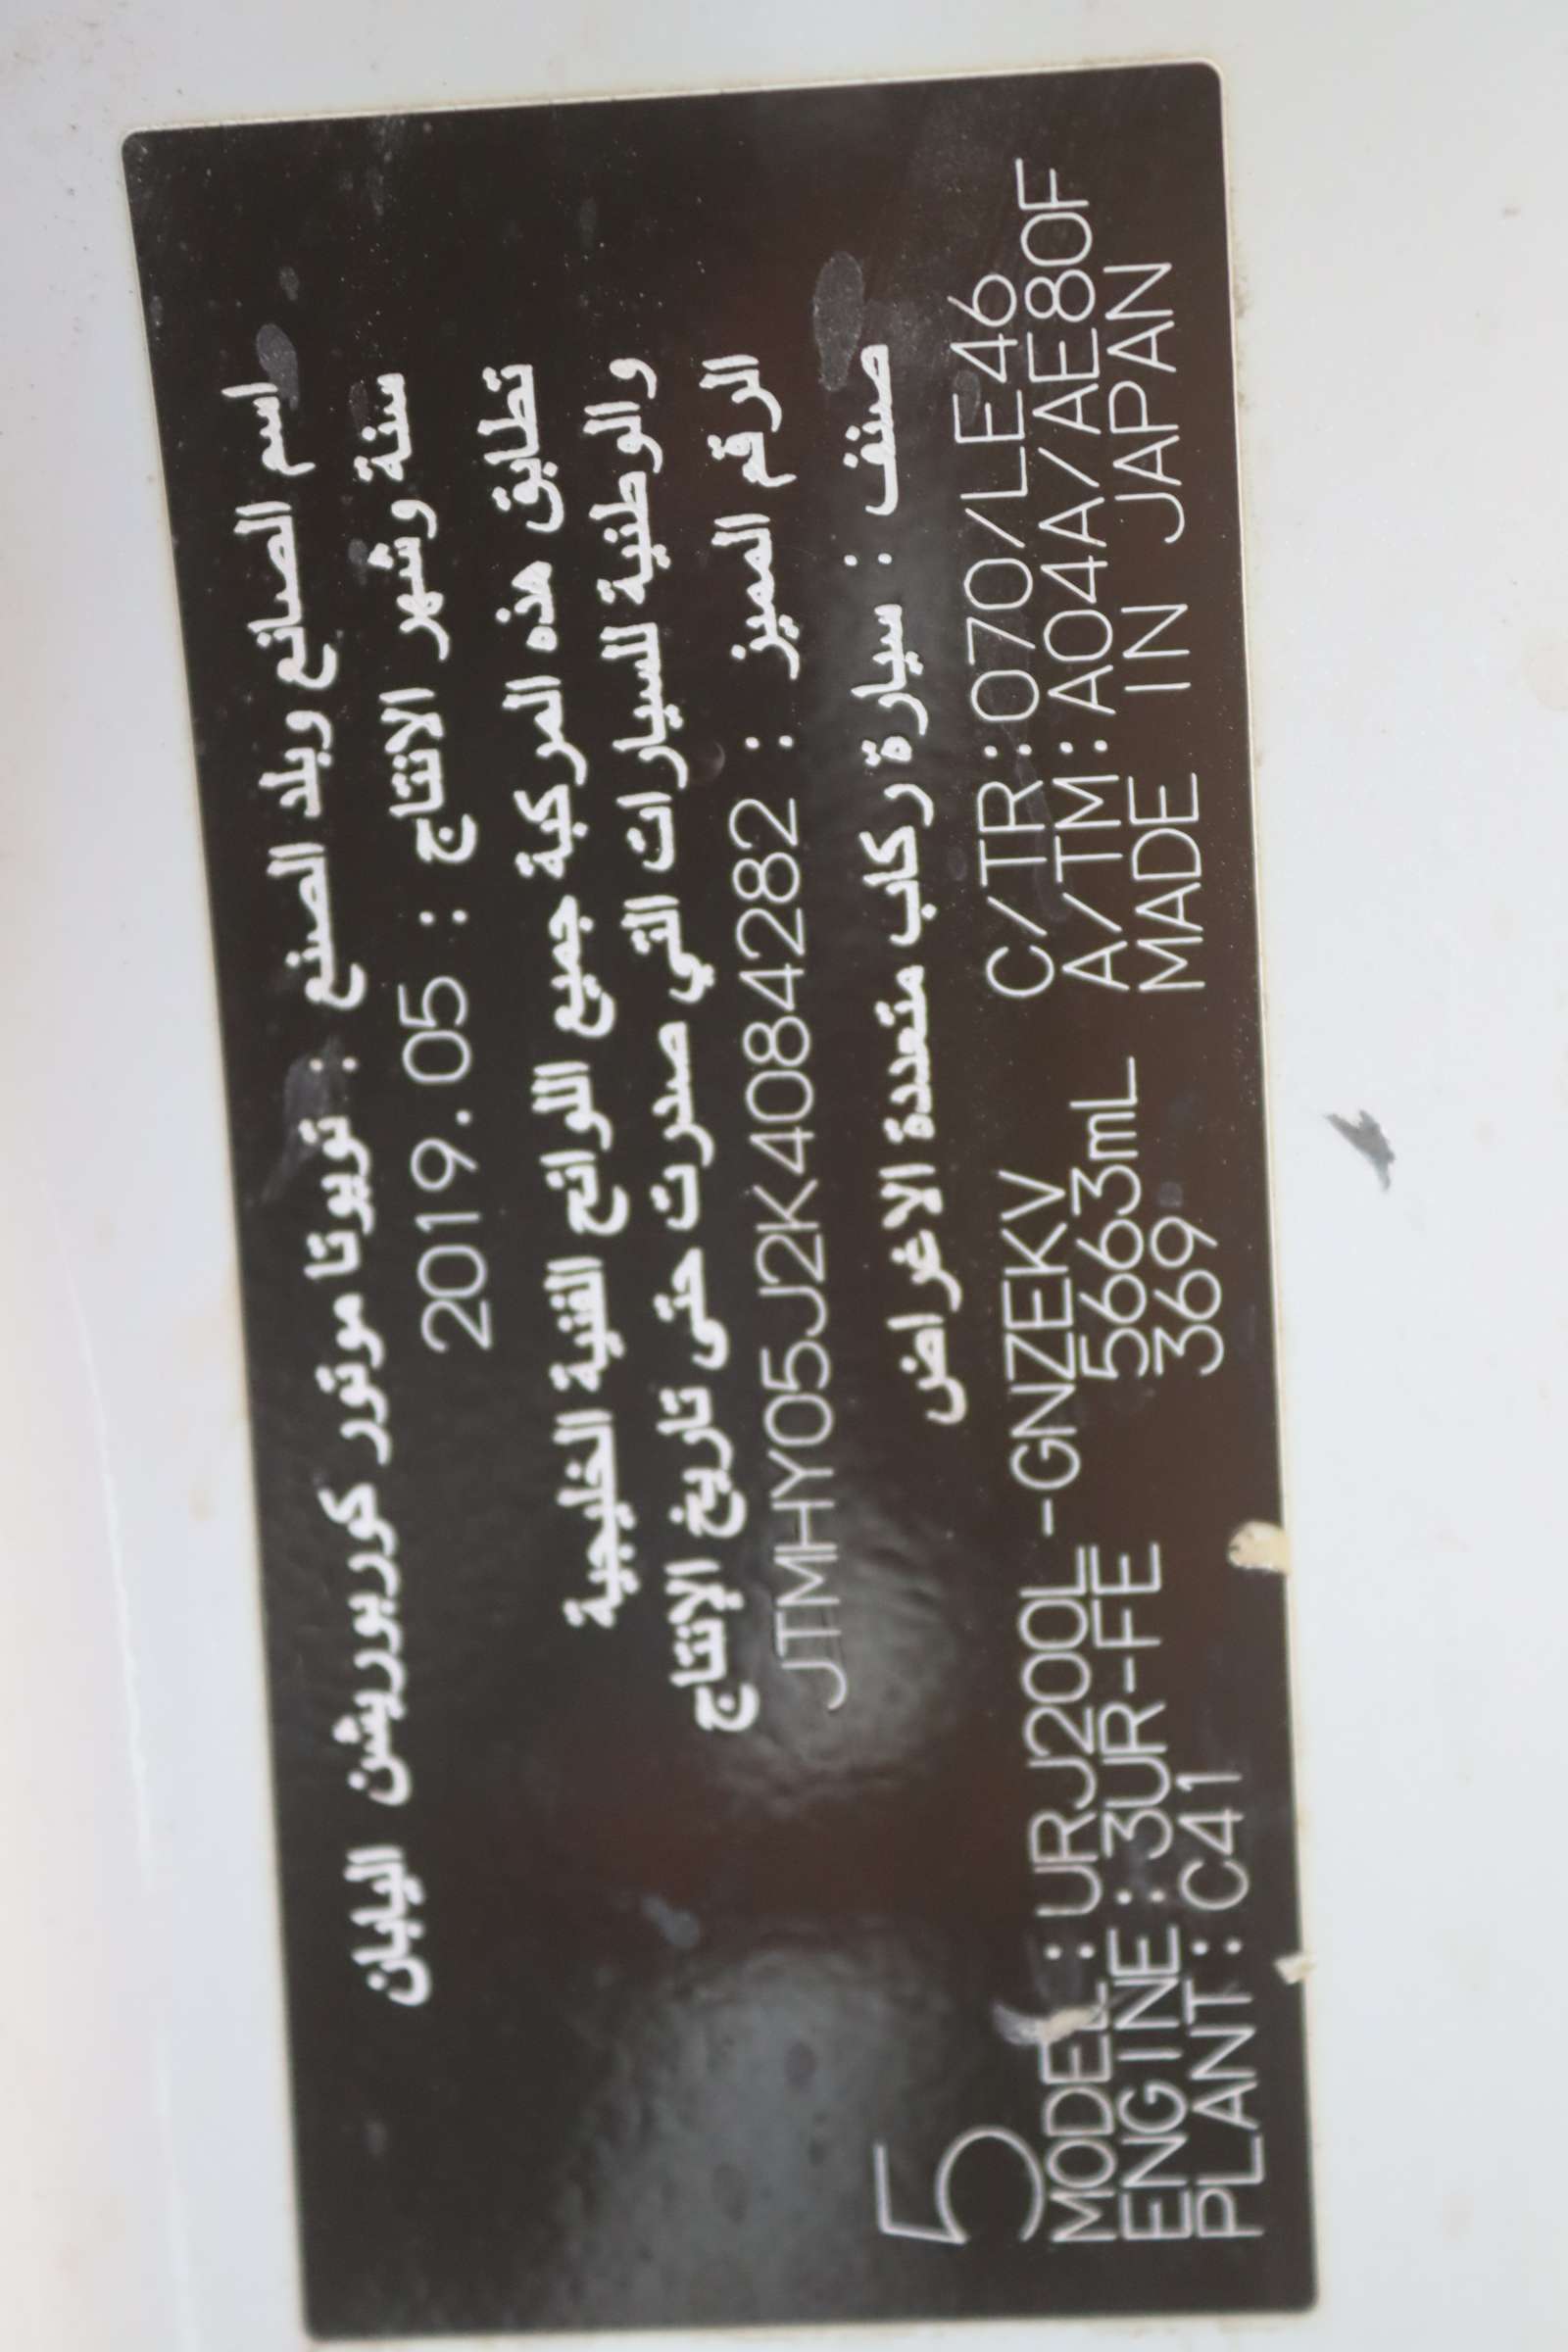 اسم الصانع وبلد الصنع : تويوتا موتور كوربوريشن اليابان
سنة وشهر الانتاج : 2019.05
تطابق هذه المركبة جميع اللوائح الفنية الخليجية
والوطنية للسيارات التي صدرت حتى تاريخ الإنتاج
الرقم المميز : JTMHY05J2K4084282
صنف : سيارة ركاب متعددة الاغراض
5
MODEL:URJ200L-GNZEKV C/TR:070/LE46
ENGINE:3UR-FE 5663mL A/TM:A04A/AE80F
PLANT:C41 369 MADE IN JAPAN